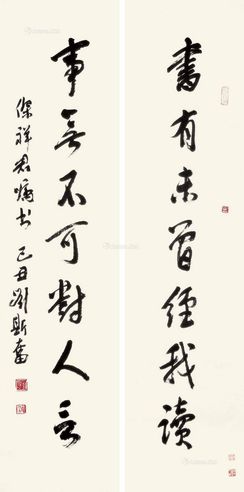 書有未曾經我讀
事無不可對人言
保祥君囑書 己丑 劉斯奮